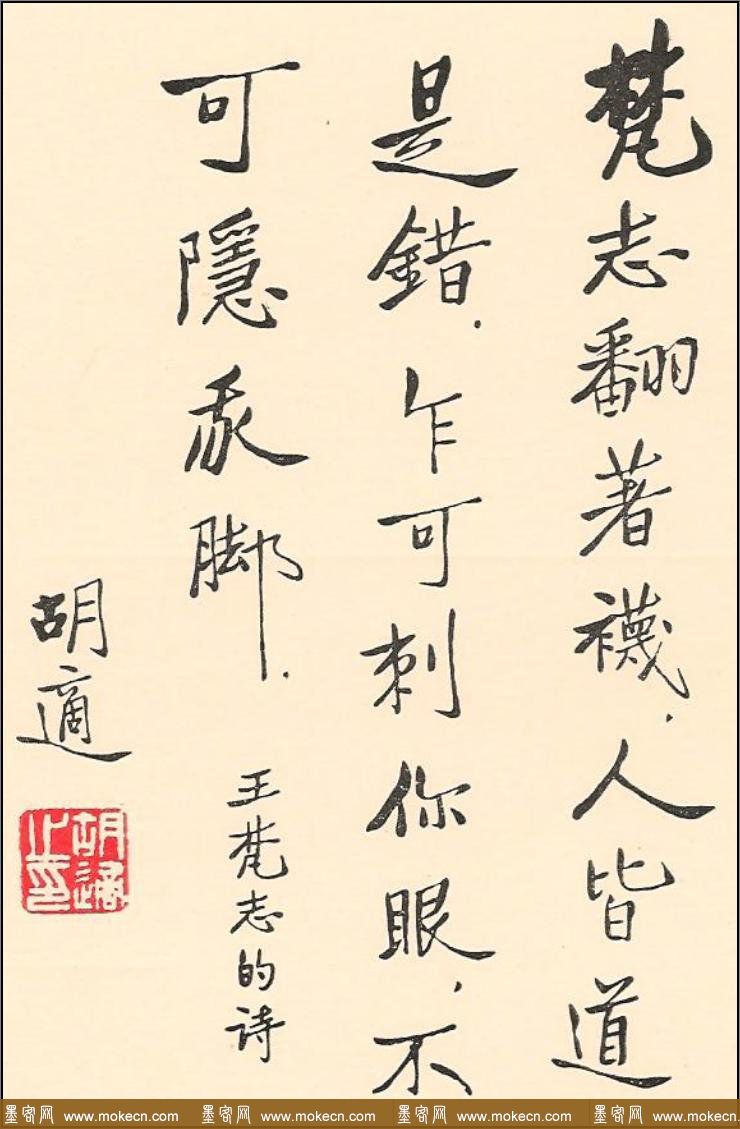 梵志翻著襪，人皆道
是錯，乍可刺你眼，不
可隱我脚．
王梵志的诗
胡適
胡適之印
墨客网 www.mokecn.com 墨客网 www.mokecn.com 墨客网 www.mokecn.com 墨客网 www.mokecn.